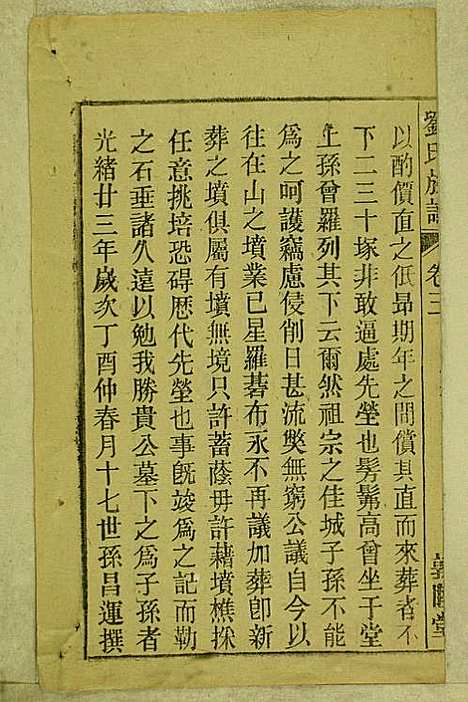 劉氏族譜 卷三
以酌價直之低昻期年之間償其直而來葬者不
下二三十塚非敢逼處先塋也髣髴高曾坐于堂
上孫曾羅列其下云爾然祖宗之佳城子孫不能
爲之呵護竊慮侵削日甚流獘無窮公議自今以
往在山之墳業已星羅碁布永不再議加葬卽新
葬之墳俱屬有墳無境只許蓄蔭毋許藉墳樵採
任意挑培恐碍歴代先塋也事旣竣爲之記而勒
之石垂諸久遠以勉我勝貴公墓下之爲子孫者
光緒廿三年歲次丁酉仲春月十七世孫昌運撰